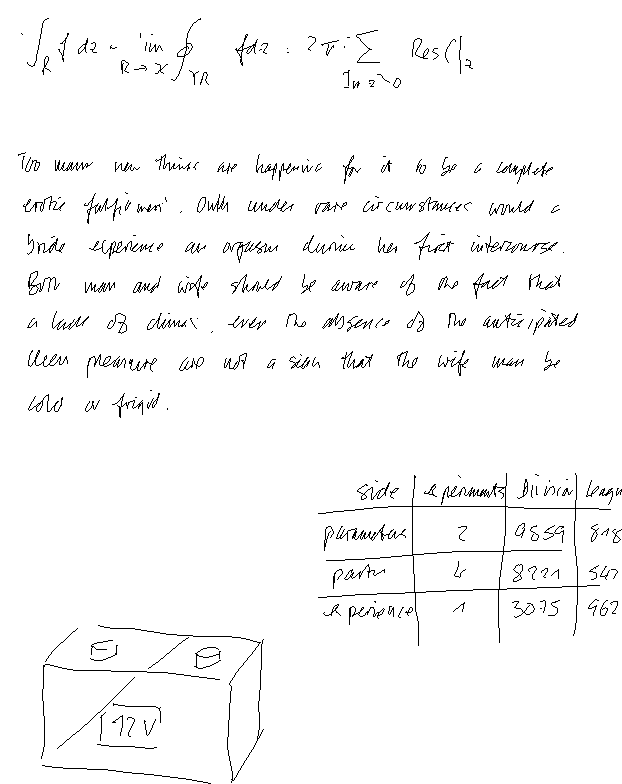 ∫_R f dz = lim_{R→∞} ∮_{γR} f dz = 2πi ∑_{Im z>0} Res( |_z
Too many new things are happening for it to be a complete
erotic fulfilment. Only under rare circumstances would a
bride experience an orgasm during her first intercourse.
Both man and wife should be aware of the fact that
a lack of climax, even the absence of the anticipated
keen pleasure are not a sign that the wife may be
cold or frigid.
side experiments Division League
parameters 2 9859 818
party 4 8221 547
experience 1 3075 962
12V